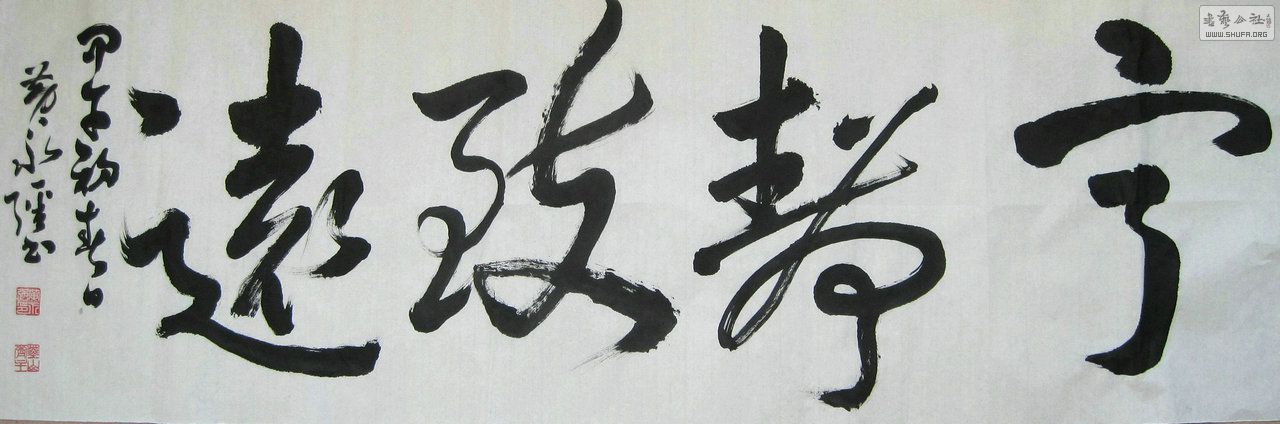 宁静致远
甲午初春日
黄永隆书
书艺公社
WWW.SHUFA.ORG